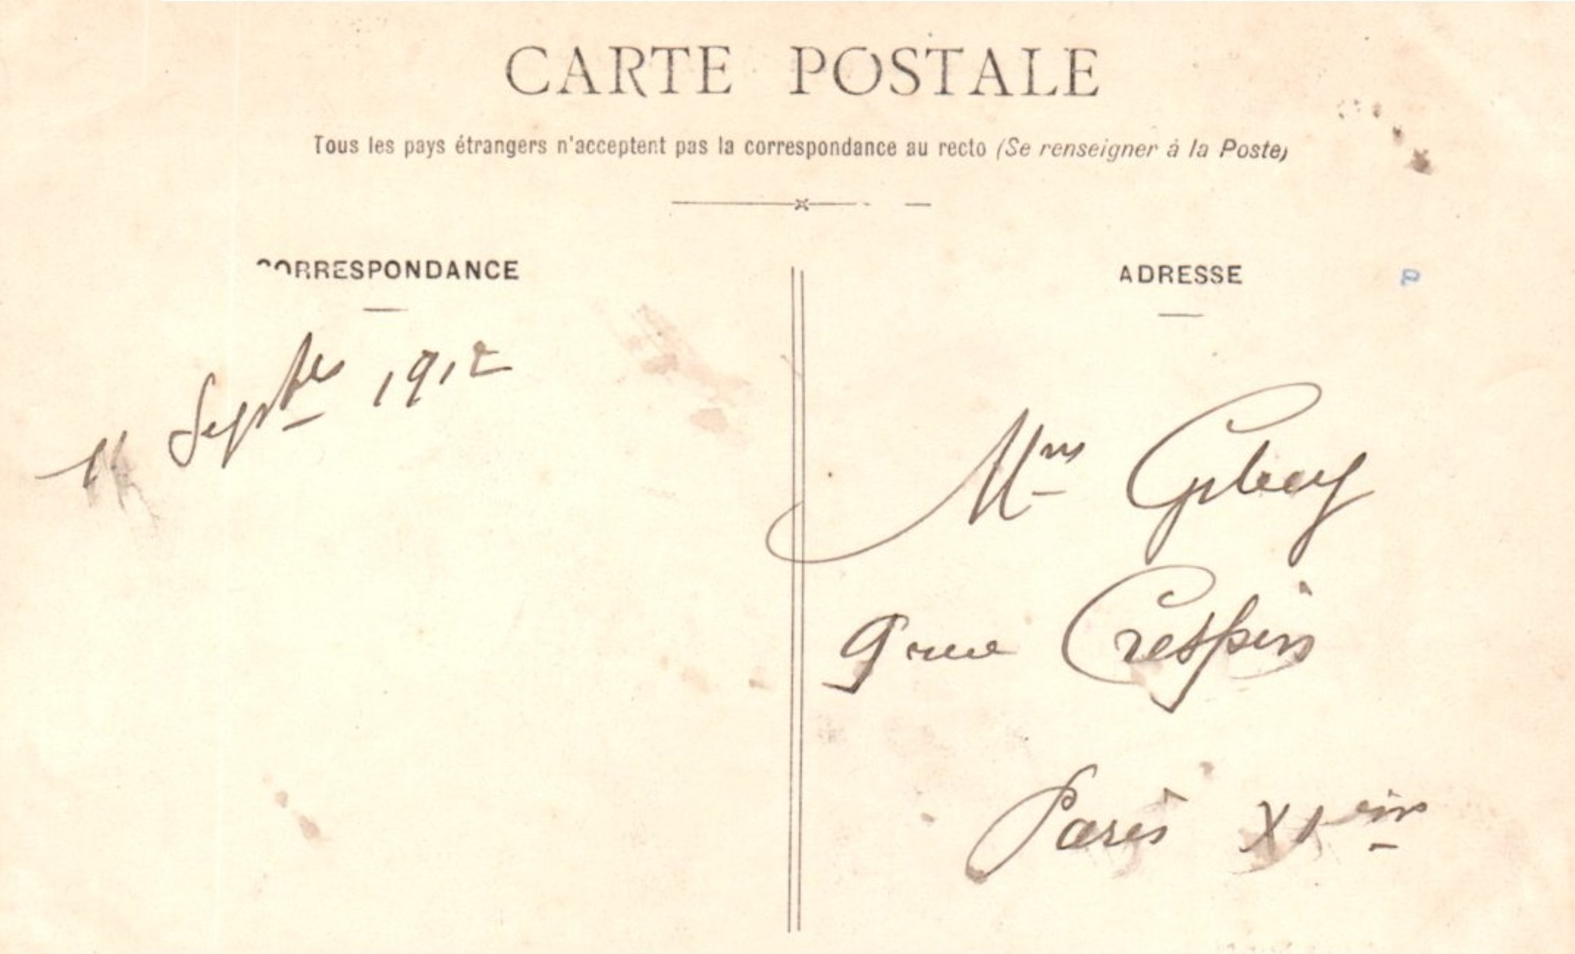 CARTE POSTALE
Tous les pays étrangers n'acceptent pas la correspondance au recto (Se renseigner à la Poste)
CORRESPONDANCE
ADRESSE
Septbre 1912
Mme
9 rue Crespin
Paris XIeme